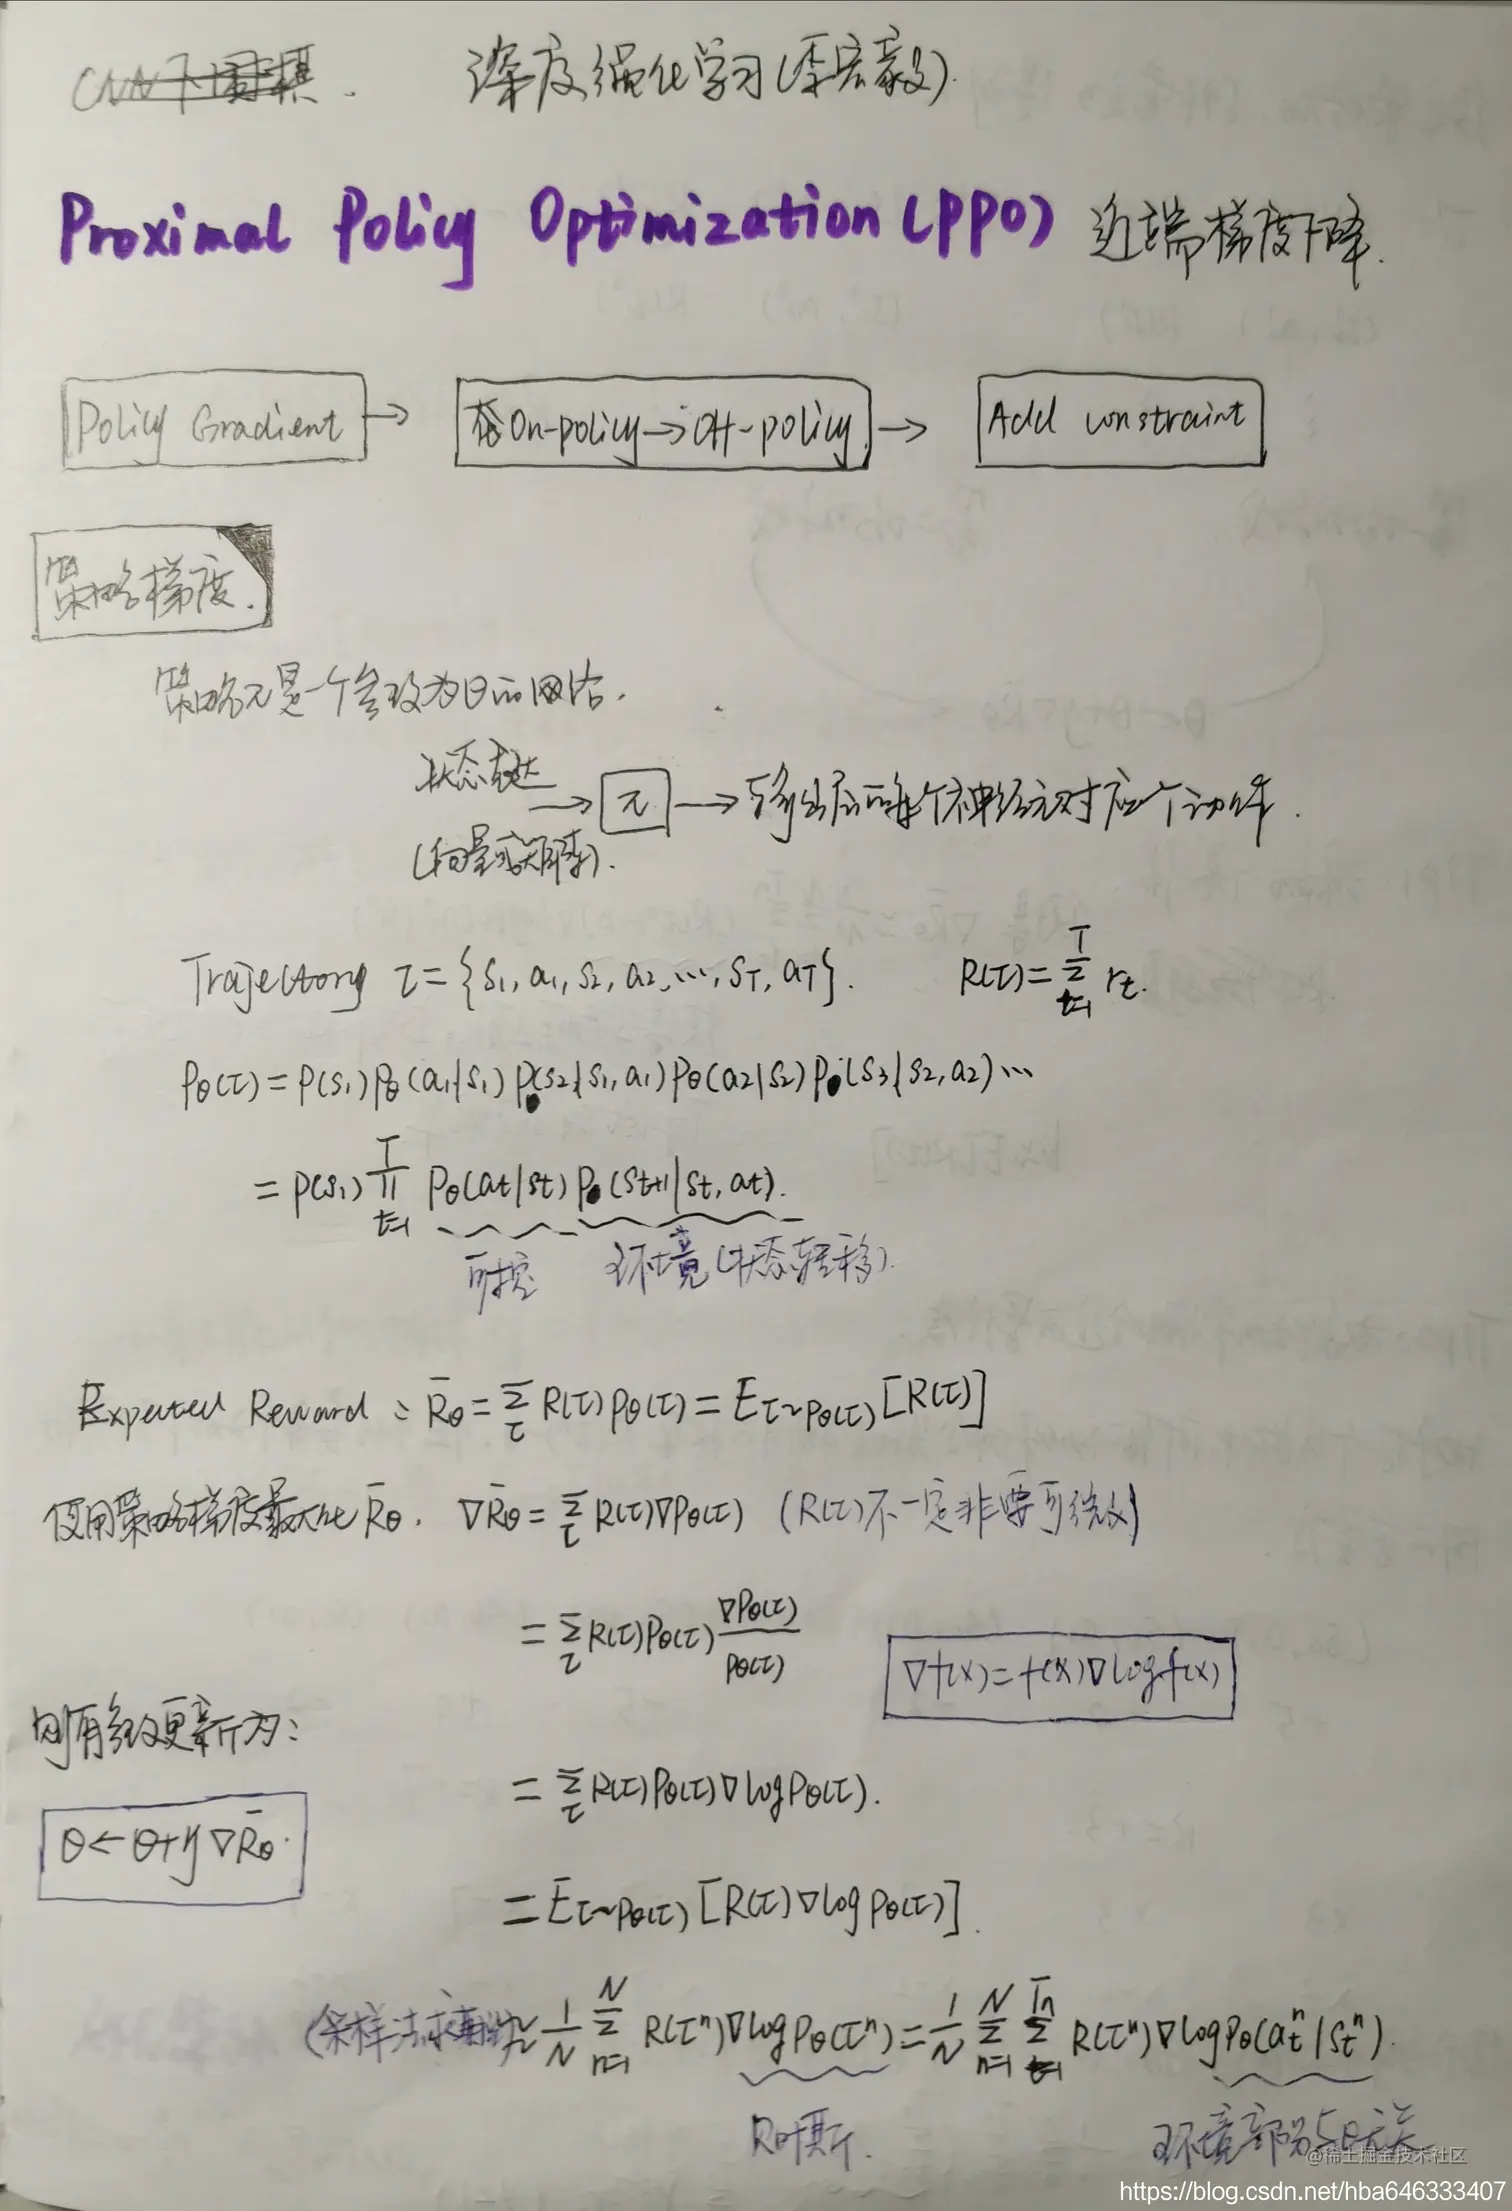 CNN下围棋. 深度强化学习(李宏毅).
Proximal Policy Optimization (PPO) 近端梯度下降.
Policy Gradient → 在On-policy→Off-policy → Add constraint
策略梯度.
策略π是一个参数为θ的网络.
状态表达
→ π → 输出层的每个神经元对应一个动作.
(向量或矩阵).
Trajectory τ={s1,a1,s2,a2,…,sT,aT}. R(τ)=Σ_{t=1}^{T} rt.
Pθ(τ)=P(s1)Pθ(a1|s1)P(s2|s1,a1)Pθ(a2|s2)P(s3|s2,a2)…
=P(s1)Π_{t=1}^{T} Pθ(at|st)P(st+1|st,at).
可控 环境(状态转移).
Expected Reward: R̄θ=Σ_τ R(τ)Pθ(τ)=E_{τ~Pθ(τ)}[R(τ)]
使用策略梯度最大化R̄θ. ∇R̄θ=Σ_τ R(τ)∇Pθ(τ) (R(τ)不一定非要可微)
=Σ_τ R(τ)Pθ(τ) ∇Pθ(τ)/Pθ(τ)
∇f(x)=f(x)∇logf(x)
则有参数更新为:
=Σ_τ R(τ)Pθ(τ)∇logPθ(τ).
θ←θ+η∇R̄θ.
=E_{τ~Pθ(τ)}[R(τ)∇logPθ(τ)].
≈1/N Σ_{n=1}^{N} R(τ^n)∇logPθ(τ^n)=1/N Σ_{n=1}^{N} Σ_{t=1}^{Tn} R(τ^n)∇logPθ(at^n|st^n).
环境部分与θ无关
@稀土掘金技术社区
https://blog.csdn.net/hba646333407